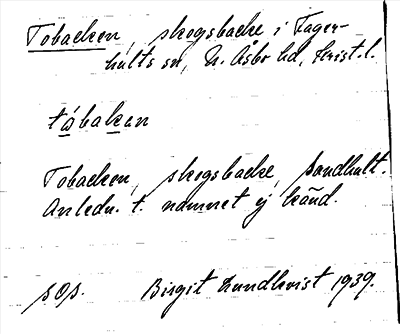 Tobacken, skogsbacke i Fager-
hults sn, N. Åsbo hd, Krist. l.
tåbakan
Tobacken, skogsbacke, Sandhult.
Anledn. t. namnet ej känd.
SOS. Birgit Lundkvist 1939.